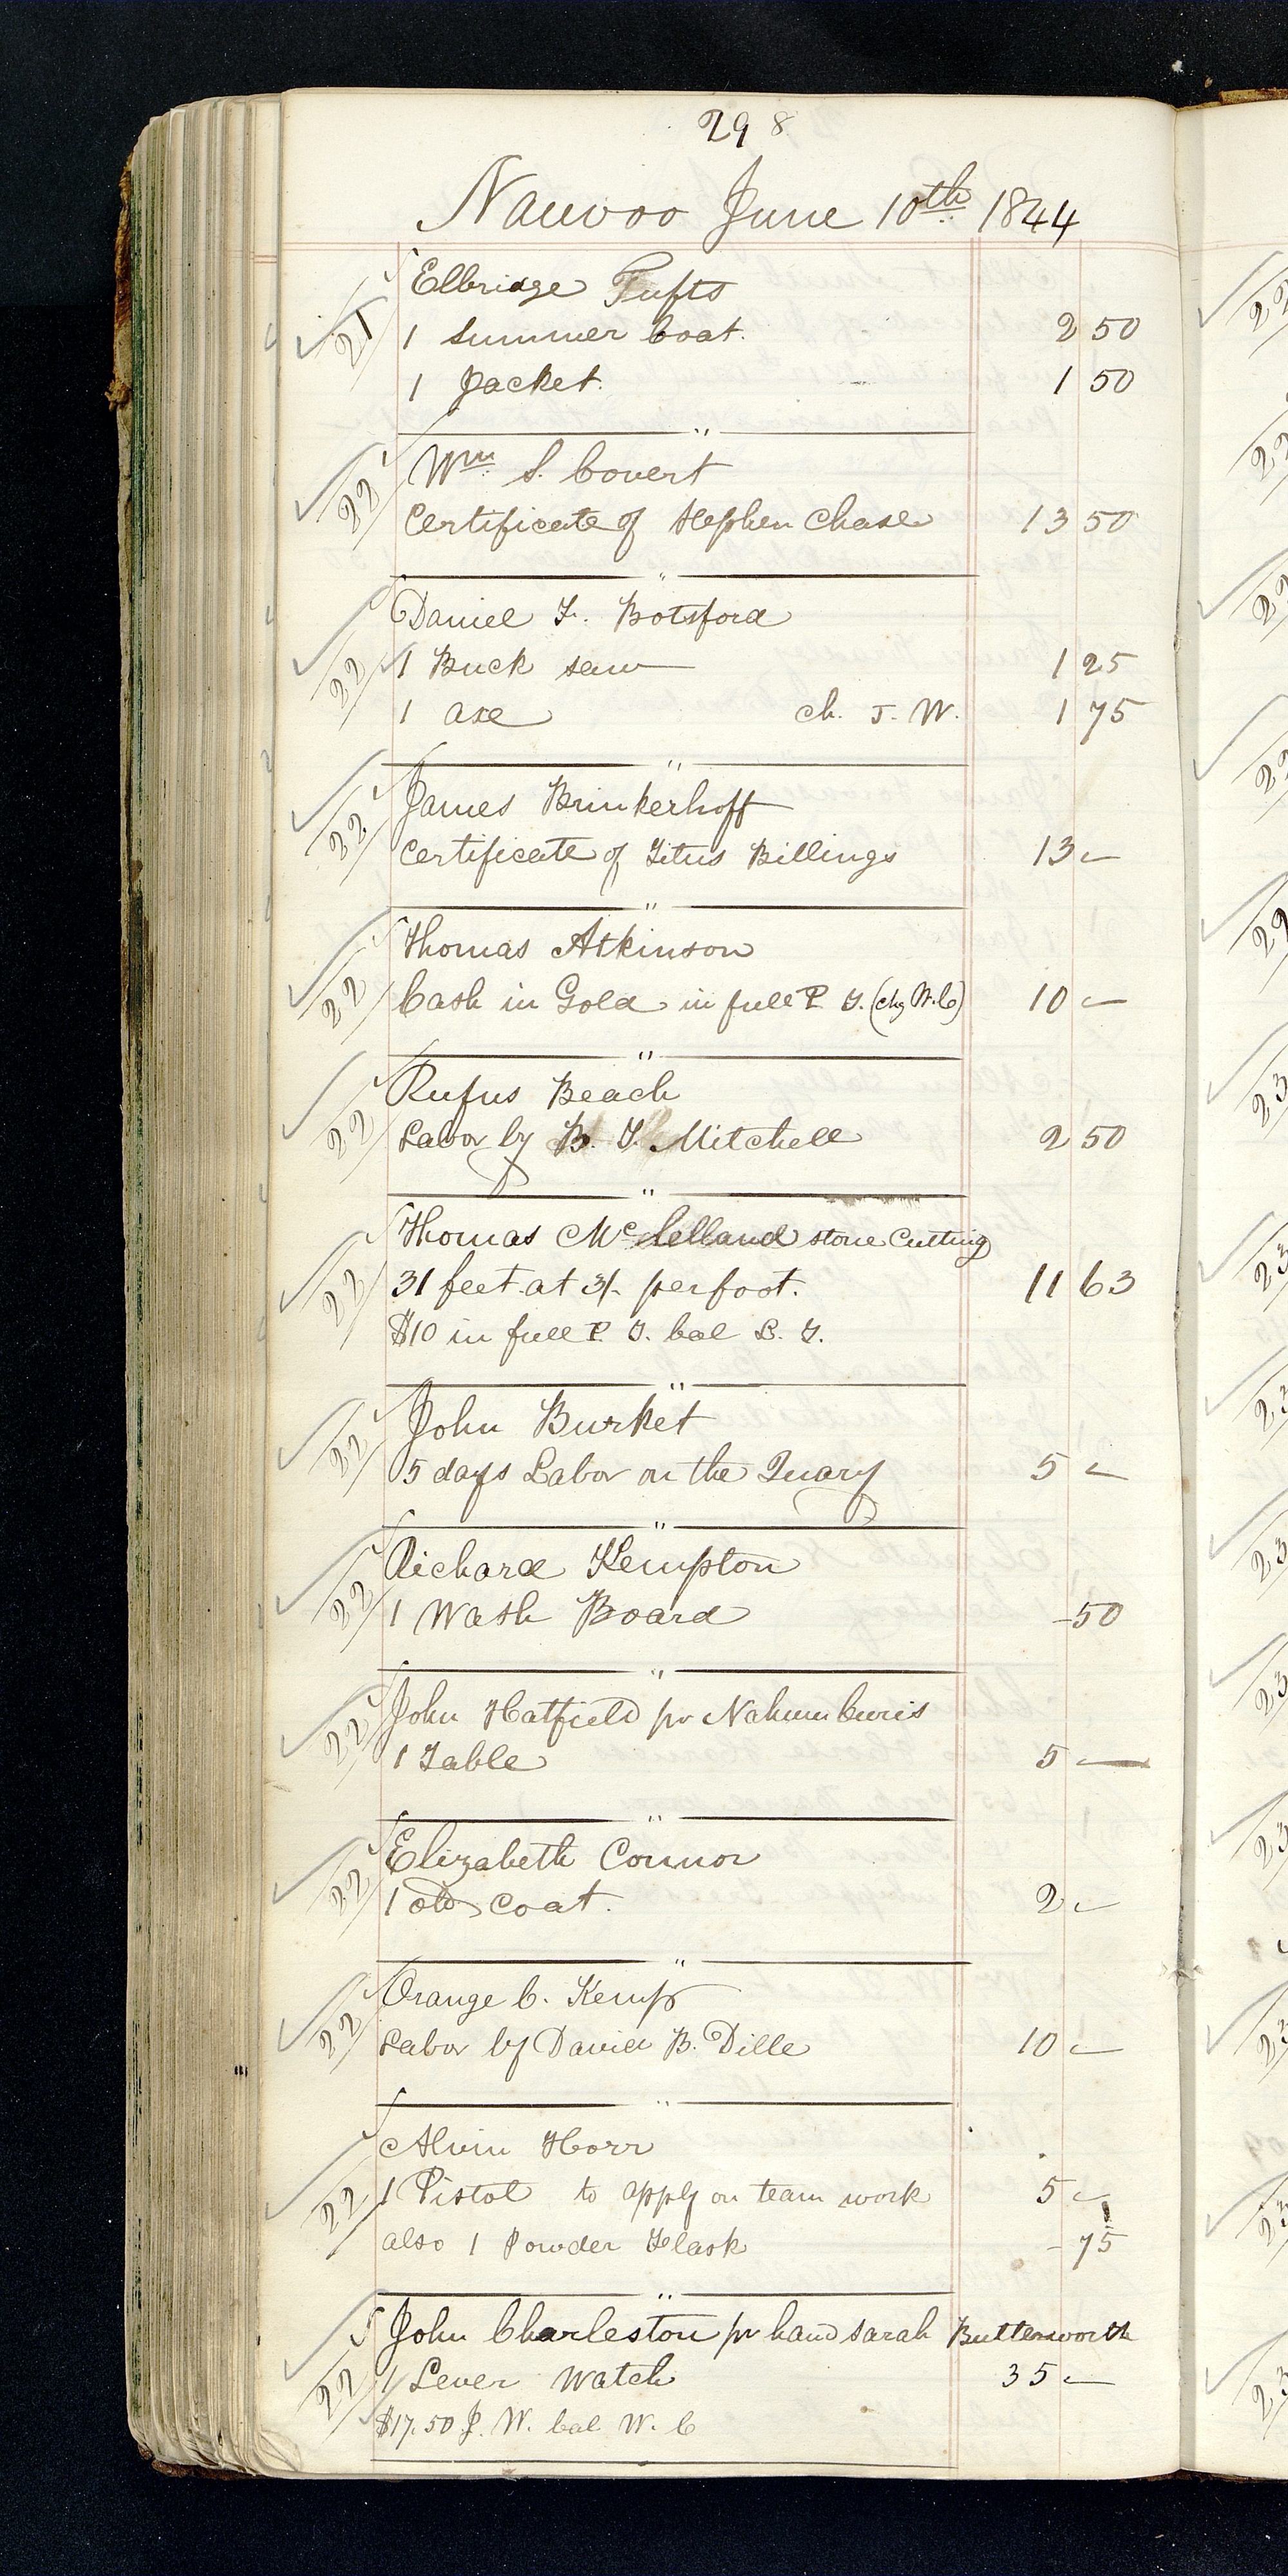 298
Nauvoo June 10th 1844
21 Elbridge Tufts
1 Summer Coat. 2 50
1 Jacket. 1 50
22 Wm S. Covert
Certificate of Stephen Chase 13 50
22 Daniel F. Botsford
1 Buck saw 1 25
1 axe ch. J. W. 1 75
22 James Brinkerhoff
Certificate of Titus Billings 13 -
22 Thomas Atkinson
Cash in Gold in full P. T. (chg W. C) 10 -
22 Rufus Beach
Labor by B. T. Mitchell 2 50
22 Thomas McClelland stone Cutting
31 feet at 3/- per foot. 11 63
$10 in full P. T. bal L. T.
22 John Burket
5 days Labor on the Quary 5 -
22 Richard Kempton
1 Wash Board - 50
22 John Hatfield pr Nahum Curis
1 Table 5 -
22 Elizabeth Connor
1 old coat. 2 -
22 Orange C. Kemp
Labor by David B. Dille 10 -
22 Alvin Horr
1 Pistol to apply on team work 5 -
also 1 Powder Flask - 75
22 John Charleston pr hand Sarah Butterworth
1 Lever Watch 35 -
$17.50 J. W. bal W. C